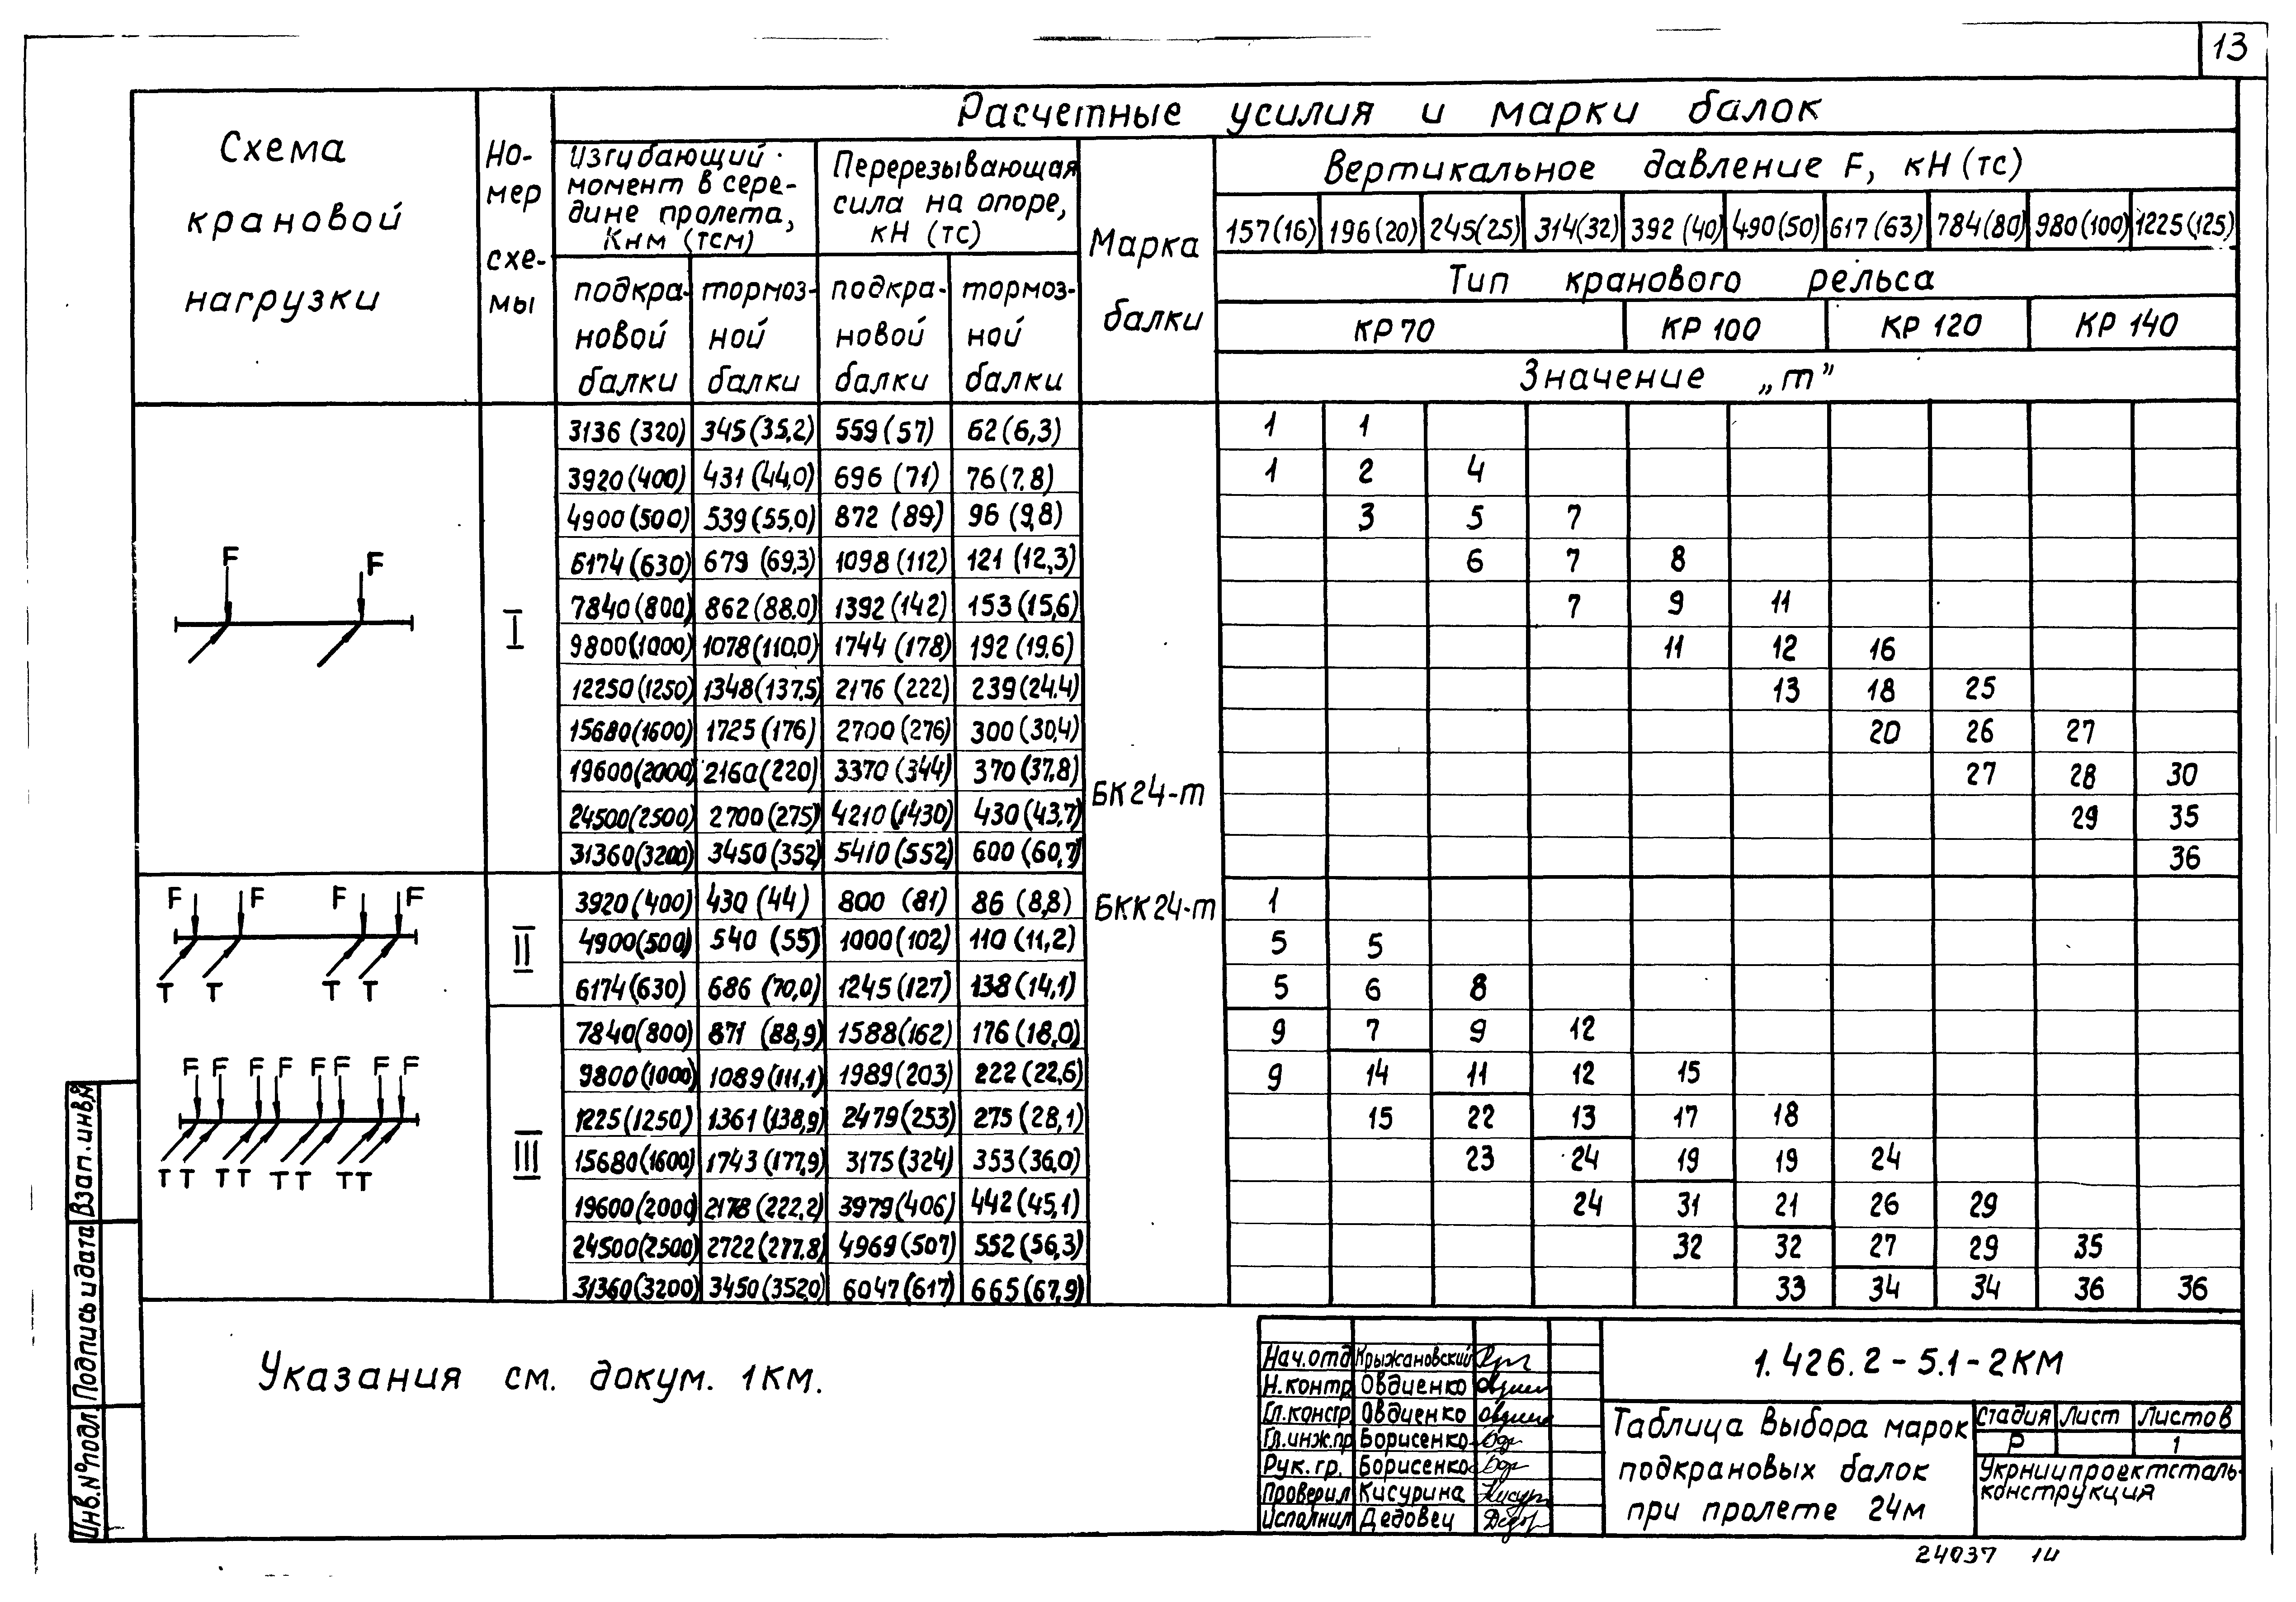 13
Схема крановой нагрузки
Но- мер схе- мы
Расчетные усилия и марки балок
Изгибающий момент в сере- дине пролета, Кнм (тсм)
Перерезывающая сила на опоре, кН (тс)
Марка балки
Вертикальное давление F, кН (тс)
157(16) 196(20) 245(25) 314(32) 392 (40) 490(50) 617 (63) 784(80) 980(100) 1225(125)
Тип кранового рельса
подкра- новой балки
тормоз- ной балки
подкра- новой балки
тормоз- ной балки
КР 70 КР 100 КР 120 КР 140
Значение „m”
3136 (320) 345(35,2) 559(57) 62(6,3) 1 1
3920(400) 431(44,0) 696 (71) 76(7.8) 1 2 4
4900(500) 539(55,0) 872 (89) 96 (9,8) 3 5 7
F F
6174(630) 679 (69,3) 1098(112) 121 (12,3) 6 7 8
I
7840(800) 862(88.0) 1392(142) 153(15,6) 7 9 11
9800(1000) 1078(110,0) 1744 (178) 192 (19.6) 11 12 16
12250(1250) 1348(137.5) 2176 (222) 239(24.4) 13 18 25
15680(1600) 1725(176) 2700 (276) 300 (30,4) 20 26 27
19600(2000) 2160(220) 3370 (344) 370 (37,8) 27 28 30
БК24-m
24500(2500) 2700(275) 4210(1430) 430(43,7) 29 35
31360(3200) 3450(352) 5410(552) 600 (60,7) 36
F F F F
3920(400) 430(44) 800 (81) 86 (8,8) БКК24-m 1
II
4900(500) 540 (55) 1000(102) 110(11,2) 5 5
T T T T
6174(630) 686 (70,0) 1245(127) 138(14,1) 5 6 8
7840(800) 871 (88,9) 1588(162) 176(18,0) 9 7 9 12
F F F F F F F F
9800(1000) 1089(111,1) 1989(203) 222(22,6) 9 14 11 12 15
1225(1250) 1361(138,9) 2479(253) 275(28,1) 15 22 13 17 18
III
T T T T T T T T
15680(1600) 1743(177,9) 3175(324) 353(36,0) 23 24 19 19 24
19600(2000) 2178(222,2) 3979(406) 442(45,1) 24 31 21 26 29
24500(2500) 2722(277.8) 4969(507) 552(56,3) 32 32 27 29 35
31360(3200) 3450(3520) 6047(617) 665(67,9) 33 34 34 36 36
Указания см. докум. 1КМ.
Взап. инв.№
Подпись и дата
Инв.№подл.
Нач.отд Крыжановский
Н.контр Овдиенко
Гл.констр. Овдиенко
Гл.инж.пр Борисенко
Рук.гр. Борисенко
Проверил Кисурина
Исполнил Дедовец
1.426.2-5.1-2КМ
Таблица выбора марок подкрановых балок при пролете 24м
Стадия Лист Листов
Р 1
Укрниипроектсталь- конструкция
24037 14